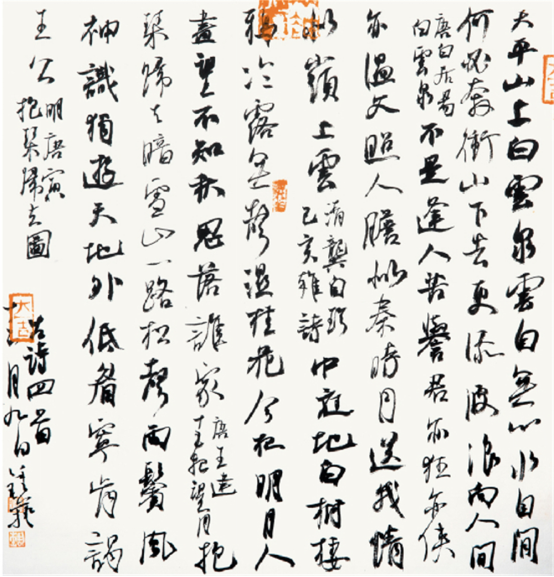 天平山上白雲泉雲自無心水自閒
何必奔衝山下去更添波浪向人間
唐白居易
白雲泉
不是逢人苦譽君亦狂亦俠
亦溫文照人膽似秦時月送我情
似嶺上雲
清龔自珍
己亥雜詩
中庭地白樹棲
鴉冷露無聲濕桂花今夜明月人
盡望不知秋思落誰家
唐王建
十五夜望月
抱
琴歸去雪山一路松聲兩鬢風
神識獨遊天地外低眉寧肯謁
王公
明唐寅
抱琴歸去圖
古詩四首
月九日